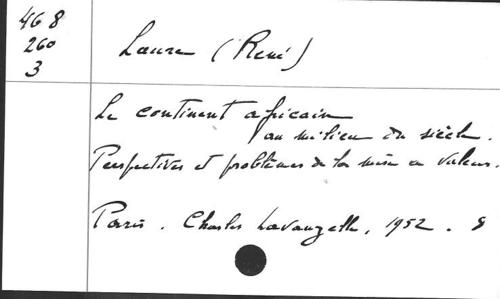 468
260
3
Laure (René)
Le continent africain
au milieu du siècle.
Perspectives et problèmes de la mise en valeur.
Paris. Charles Lavauzelle, 1952. 8